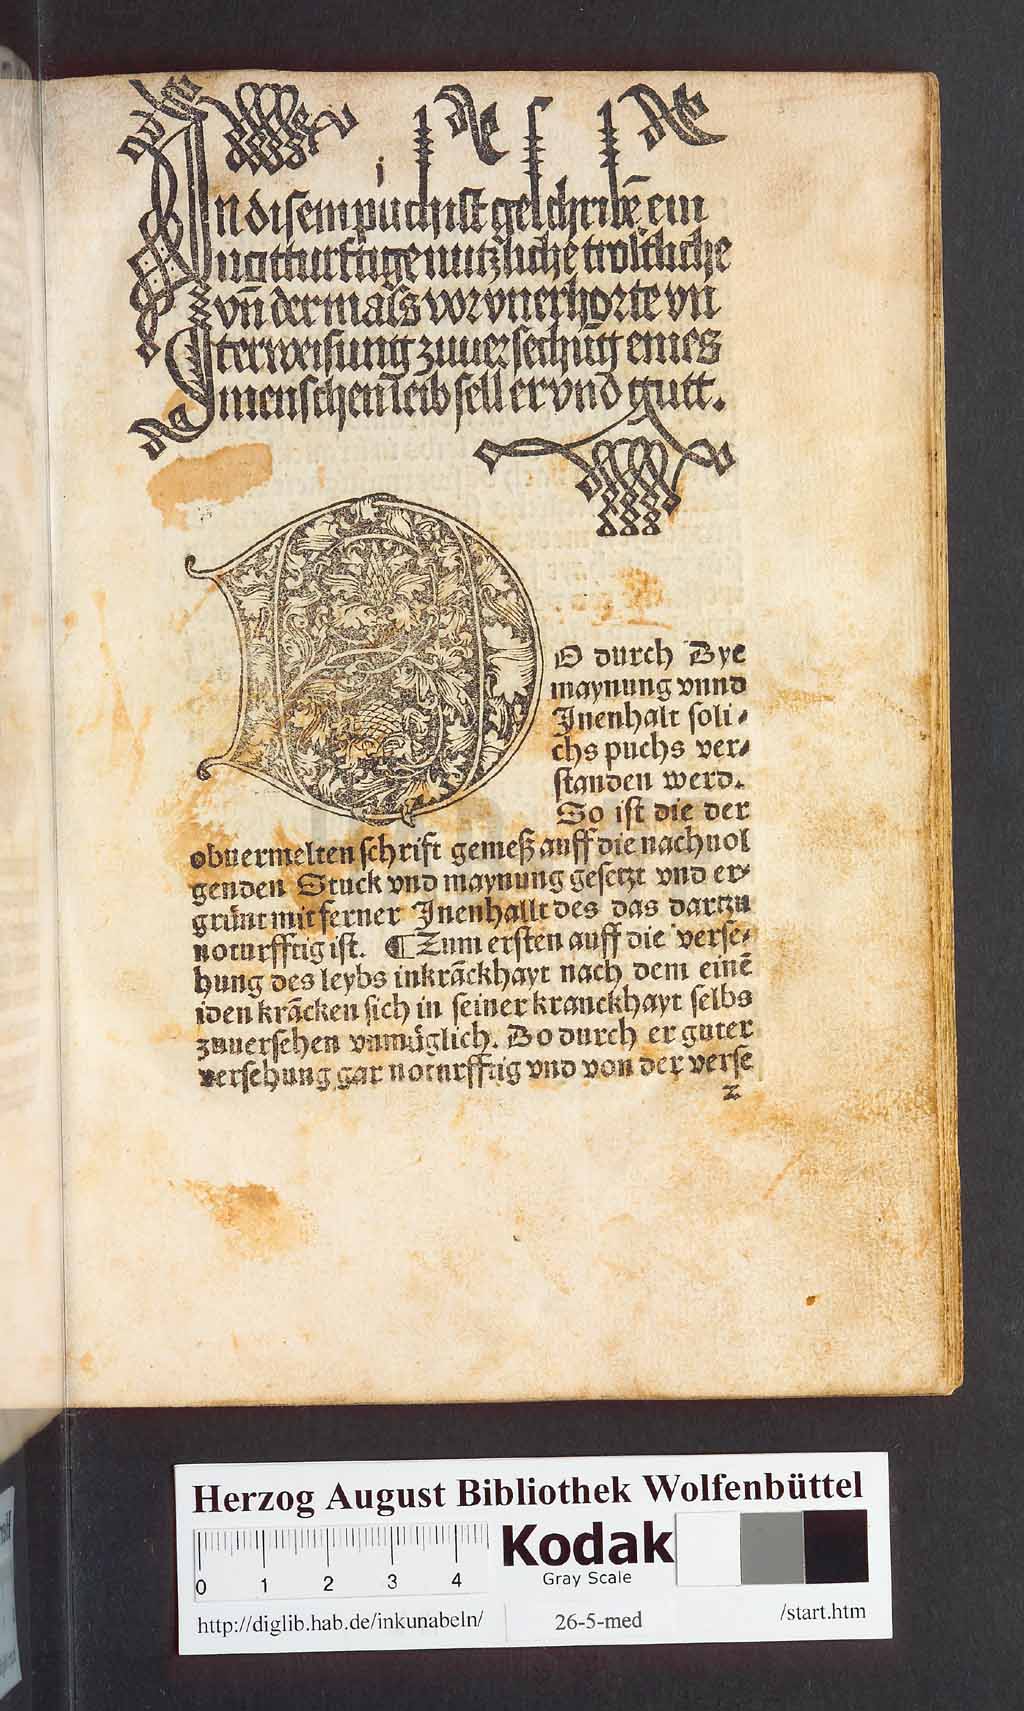 In disem puch ist geschribē ein
nottturftige nutzliche trostliche
vn̄ dermass vor vnerhorte vn
terweisung zuuersechūg eines
menschen leib sell er vnd gutt.
O durch Dye
maynung vnnd
Jnenhalt soli⸗
chs puchs ver⸗
standen werd.
So ist die der
obuermelten schrift gemeß auff die nachuol
genden Stuck vnd maynung gesetzt vnd er⸗
grünt mit ferner Jnenhallt des das dartzu
noturfftig ist. ¶ Zum ersten auff die verse⸗
hung des leybs in krāckhayt nach dem einē
iden krācken sich in seiner kranckhayt selbs
zuuersehen vnmüglich. Do durch er guter
versehung gar noturfftig vnd von der verse
2
Herzog August Bibliothek Wolfenbüttel
Kodak
Gray Scale
0 1 2 3 4
http://diglib.hab.de/inkunabeln/ 26-5-med /start.htm